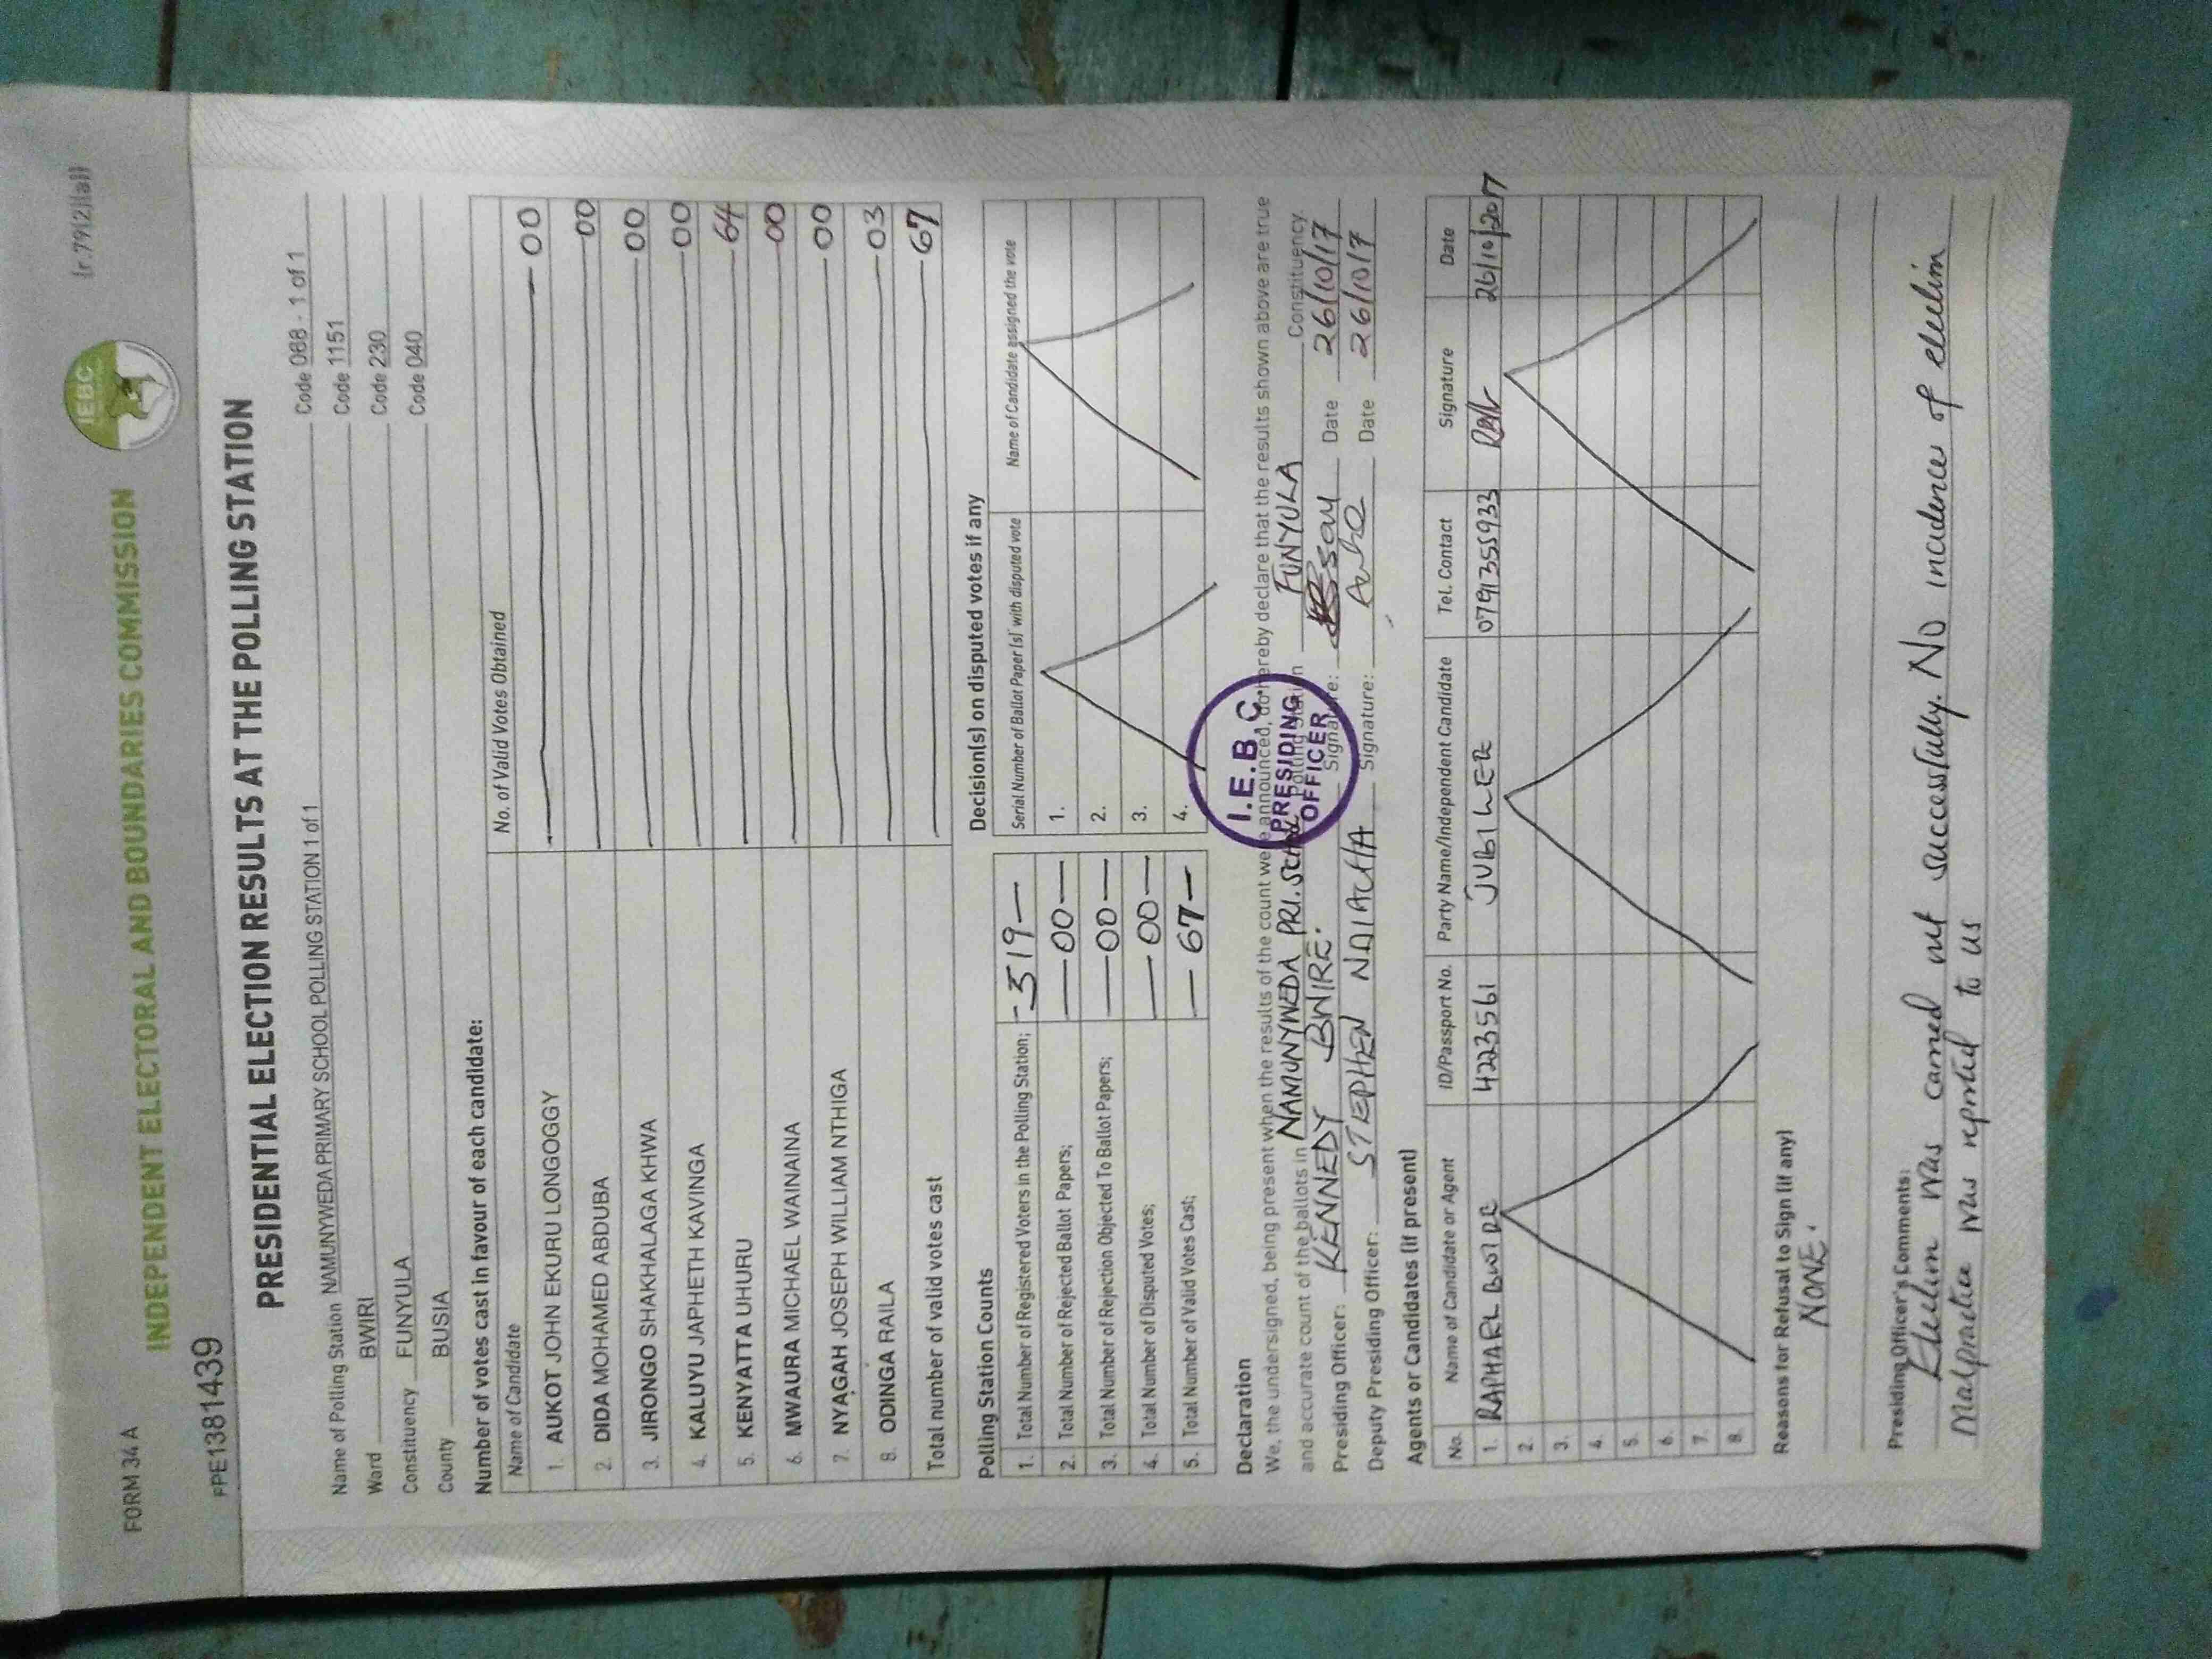 FORM 34 A
(r.79(2)(a))
IEBC
INDEPENDENT ELECTORAL AND BOUNDARIES COMMISSION
PPE1381439
PRESIDENTIAL ELECTION RESULTS AT THE POLLING STATION
Name of Polling Station NAMUNYWEDA PRIMARY SCHOOL POLLING STATION 1 of 1 Code 088 - 1 of 1
Ward BWIRI Code 1151
Constituency FUNYULA Code 230
County BUSIA Code 040
Number of votes cast in favour of each candidate:
Name of Candidate No. of Valid Votes Obtained
1. AUKOT JOHN EKURU LONGOGGY 00
2. DIDA MOHAMED ABDUBA 00
3. JIRONGO SHAKHALAGA KHWA 00
4. KALUYU JAPHETH KAVINGA 00
5. KENYATTA UHURU 64
6. MWAURA MICHAEL WAINAINA 00
7. NYAGAH JOSEPH WILLIAM NTHIGA 00
8. ODINGA RAILA 03
Total number of valid votes cast 67
Polling Station Counts
1. Total Number of Registered Voters in the Polling Station; 519
2. Total Number of Rejected Ballot Papers; 00
3. Total Number of Rejection Objected To Ballot Papers; 00
4. Total Number of Disputed Votes; 00
5. Total Number of Valid Votes Cast; 67
Decision(s) on disputed votes if any
Serial Number of Ballot Paper (s) with disputed vote Name of Candidate assigned the vote
1.
2.
3.
4.
I.E.B.C.
PRESIDING
OFFICER
Declaration
We, the undersigned, being present when the results of the count were announced, do hereby declare that the results shown above are true
and accurate count of the ballots in NAMUNYWEDA PRI. School Polling Station FUNYULA Constituency
Presiding Officer: KENNEDY BWIRE. Signature: Date 26/10/17
Deputy Presiding Officer: STEPHEN NDIACHA Signature: Date 26/10/17
Agents or Candidates (if present)
No. Name of Candidate or Agent ID/Passport No. Party Name/Independent Candidate Tel. Contact Signature Date
1. RAPHAEL BWIRE 4223561 JUBILEE 0791355933 26/10/2017
2.
3.
4.
5.
6.
7.
8.
Reasons for Refusal to Sign (if any)
NONE.
Presiding Officer's Comments:
Election was carried out successfully. No incidence of election
Malpractice was reported to us